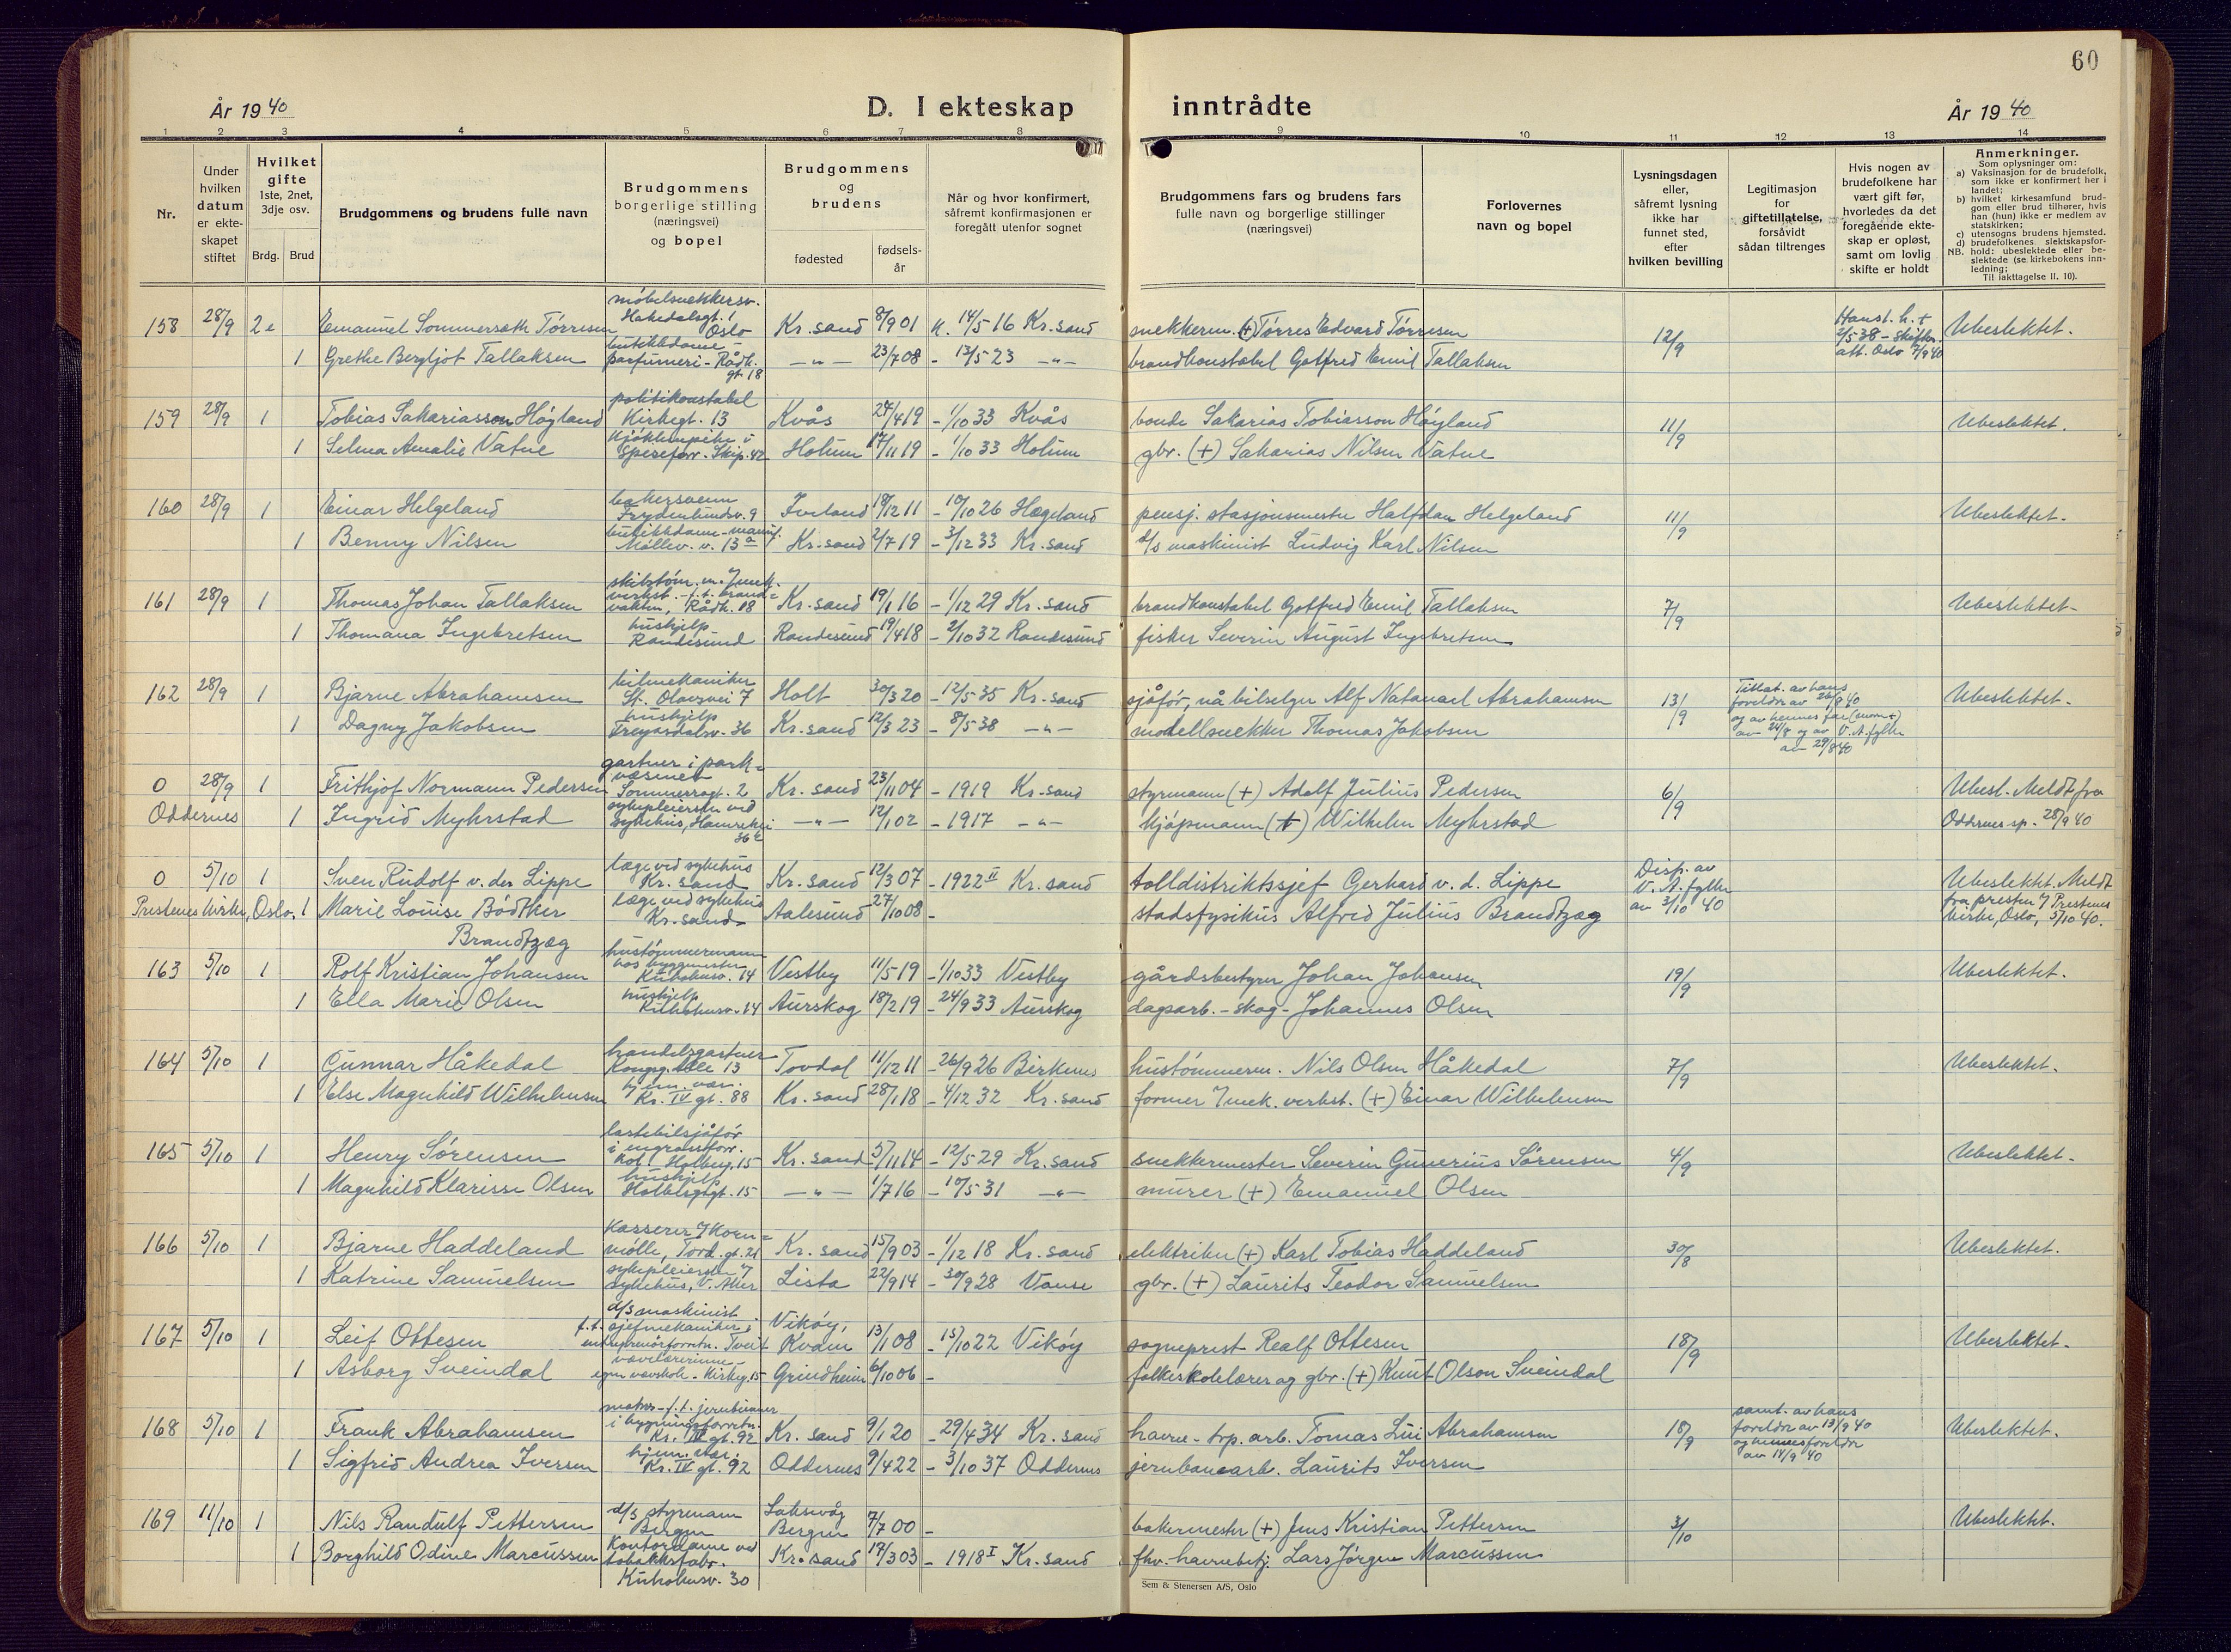 60
År 1940
D. I ekteskap inntrådte
År 1940
1 2 3 4 5 6 7 8 9 10 11 12 13 14
Nr.
Under hvilken datum er ekteskapet stiftet
Hvilket gifte 1ste, 2net, 3dje osv.
Brdg. Brud
Brudgommens og brudens fulle navn
Brudgommens borgerlige stilling (næringsvei) og bopel
Brudgommens og brudens
fødested
fødsels-år
Når og hvor konfirmert, såfremt konfirmasjonen er foregått utenfor sognet
Brudgommens fars og brudens fars fulle navn og borgerlige stillinger (næringsvei)
Forlovernes navn og bopel
Lysningsdagen eller, såfremt lysning ikke har funnet sted, efter hvilken bevilling
Legitimasjon for giftetillatelse, forsåvidt sådan tiltrenges
Hvis nogen av brudefolkene har vært gift før, hvorledes da det foregående ekteskap er opløst, samt om lovlig skifte er holdt
Anmerkninger.
Som oplysninger om:
a) Vaksinasjon for de brudefolk, som ikke er konfirmert her i landet;
b) hvilket kirkesamfund brudgom eller brud tilhører, hvis han (hun) ikke er medlem av statskirken;
c) utensogns brudens hjemsted.
d) brudefolkenes slektskapsforhold: ubeslektede eller beslektede (se kirkebokens innledning; Til iakttagelse II. 10).
NB.
158 28/9 2e Emanuel Sommerseth Tørresen møbelsnekkersv. Hakedalsgt. 1 Oslo Kr.sand 8/9 01 K. 14/5 16 Kr.sand snekkerm. (+) Tørres Edvard Tørresen 12/9 Hans 1. h. + 2/5 38 - Skifteatt. Oslo 7/9 40 Ubeslektet.
1 Grethe Bergljot Tallaksen butikkdame - parfumeri - Rådh.gt. 18 —"— 23/7 08 - 13/5 23 —"— brandkonstabel Gotfred Emil Tallaksen
159 28/9 1 Tobias Sakariasson Høyland politikonstabel Kirkegt. 13 Kvås 27/4 19 - 1/10 33 Kvås bonde Sakarias Tobiasson Høyland 11/9 Ubeslektet.
1 Selma Amalie Vatne kjøkkenpike i speseforr. - Skip. 42 Holum 17/11 19 - 1/10 33 Holum gbr. (+) Sakarias Nilsen Vatne
160 28/9 1 Einar Helgeland bakersvenn Frydenlundsv. 9 Iveland 18/12 11 - 10/10 26 Hægeland pensj. stasjonsmester Halfdan Helgeland 11/9 Ubeslektet.
1 Benny Nilsen butikkdame - manuf. Møllev. v. 13a Kr.sand 2/7 19 - 3/12 33 Kr.sand d/s maskinist Ludvig Karl Nilsen
161 28/9 1 Thomas Johan Tallaksen skibstøm. m. 7 mek. verkst. - f.t. brandvakten, Rådh. 18 Kr.sand 19/1 16 - 1/12 29 Kr.sand brandkonstabel Gotfred Emil Tallaksen 7/9 Ubeslektet-
1 Thomana Ingebretsen hushjelp Randesund Randesund 19/4 18 - 2/10 32 Randesund fisker Severin August Ingebretsen
162 28/9 1 Bjarne Abrahamsen bilmekaniker St. Olavsvei 7 Holt 30/3 20 - 12/5 35 Kr.sand sjåfør, nå bilselger Alf Natanael Abrahamsen 13/9 Tillat. av hans foreldre av 26/8 40 og av hennes far (mor +) av 24/8 og av V.A. fylke av 29/8 40 Ubeslektet-
1 Dagny Jakobsen hushjelp Kr.sand 12/3 23 - 8/5 38 —"— modellsnekker Thomas Jakobsen
0 28/9 1 Frithjof Normann Pedersen gartner i parkvæsenet Sommerrogt. 2 Kr.sand 23/11 04 - 1919 Kr.sand styrmann (+) Adolf Julius Pedersen 6/9 Ubesl. Meldt fra
Oddernes 1 Ingrid Myhrstad sykepleierske ved sykehus, —"— 12/1 02 - 1917 —"— kjøpmann (+) Wilhelm Myhrstad Oddernes sp. 28/9 40
0 5/10 1 Sven Rudolf v. der Lippe læge ved sykehus Kr.sand Kr.sand 12/3 07 - 1922 II Kr.sand tolldistriktssjef Gerhard v. d. Lippe Disp. av V.A. fylke av 3/10 40 Ubeslektet. Meldt fra presten 7 Prestenes kirke, Oslo, 5/10 40.
Prestenes kirke, Oslo, 1 Marie Louise Bødtker Brandtzæg læge ved sykehus Kr.sand Aalesund 27/10 08 - stadsfysikus Alfred Julius Brandtzæg
163 5/10 1 Rolf Kristian Johansen hustømmermann hos byggmester Kirkehusv. 14 Vestby 11/5 19 - 1/10 33 Vestby gårdsbestyrer Johan Johansen 19/9 Ubeslektet.
1 Ella Marie Olsen hushjelp Kirkehusv. 14 Aurskog 18/2 19 - 24/9 33 Aurskog dagarb. - skog - Johannes Olsen
164 5/10 1 Gunnar Håkedal handelsgartner Kongsg. Alle 13 Tovdal 11/12 11 - 26/9 26 Birkenes hustømmerm. Nils Olsen Håkedal 7/9 Ubeslektet.
1 Else Magnhild Wilhelmsen hjem. vær. Kr. IV gt. 88 Kr.sand 28/1 18 - 4/12 32 Kr.sand former 7 mek. verkst. (+) Einar Wilhelmsen
165 5/10 1 Henry Sørensen lastebilsjåfør i engrosforr. Kol. Holberg. 15 Kr.sand 5/11 14 - 12/5 29 Kr.sand snekkermester Severin Gunerius Sørensen 4/9 Ubeslektet-
1 Magnhild Klarisse Olsen hushjelp Holbergsgt. 15 —"— 1/7 16 - 10/5 31 —"— murer (+) Emanuel Olsen
166 5/10 1 Bjarne Haddeland kasserer 7 Kornmølle, Tord. gt. 21 Kr.sand 15/9 03 - 1/12 18 Kr.sand elektriker (+) Karl Tobias Haddeland 30/8 Ubeslektet.
1 Katrine Samuelsen sykepleierske 7 sykehus, V. Aker Lista 22/9 14 - 30/9 28 Vanse gbr. (+) Laurits Teodor Samuelsen
167 5/10 1 Leif Ottesen d/s maskinist f.t. sjefmekaniker i entreprenørforretn. Tveit Vikøy, Kvam 13/1 08 - 15/10 22 Vikøy sogneprest Realf Ottesen 18/9 Ubeslektet-
1 Asborg Sveindal vevelærerinne - egen vevskole - Kirkeg. 15 Grindheim 6/10 06 - folkeskolelærer og gbr. (+) Knut Olson Sveindal
168 5/10 1 Frank Abrahamsen matros - f.t. jernbinner i bygningsforretn. Kr. IV gt. 92 Kr.sand 9/1 20 - 29/4 34 Kr.sand havne-trp. arb. Tomas Lui Abrahamsen 18/9 samt. av hans foreldre av 13/9 40 og hennes foreldre av 14/9 40 Ubeslektet.
1 Sigfrid Andrea Iversen hjem. vær. Kr. IV gt. 92 Oddernes 9/4 22 - 3/10 37 Oddernes jernbanearb. Laurits Iversen
169 11/10 1 Nils Randulf Pettersen d/s styrmann Bergen Laksevåg Bergen 7/7 00 - bakermester (+) Jens Kristian Pettersen 3/10 Ubeslektet.
1 Borghild Odine Marcussen Kontordame ved tobakksfabr. Kirkehusv. 30 Kr.sand 19/3 03 - 1918 I Kr.sand fhv. havnebetj. Lars Jørgen Marcussen
Sem & Stenersen A/S, Oslo